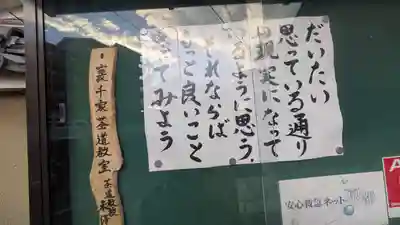 だいたい
思っている通り
の現実になって
いるように思う。
それならば
もっと良いこと
思ってみよう
裏千家茶道教室
茶道教授
安心救急ネット